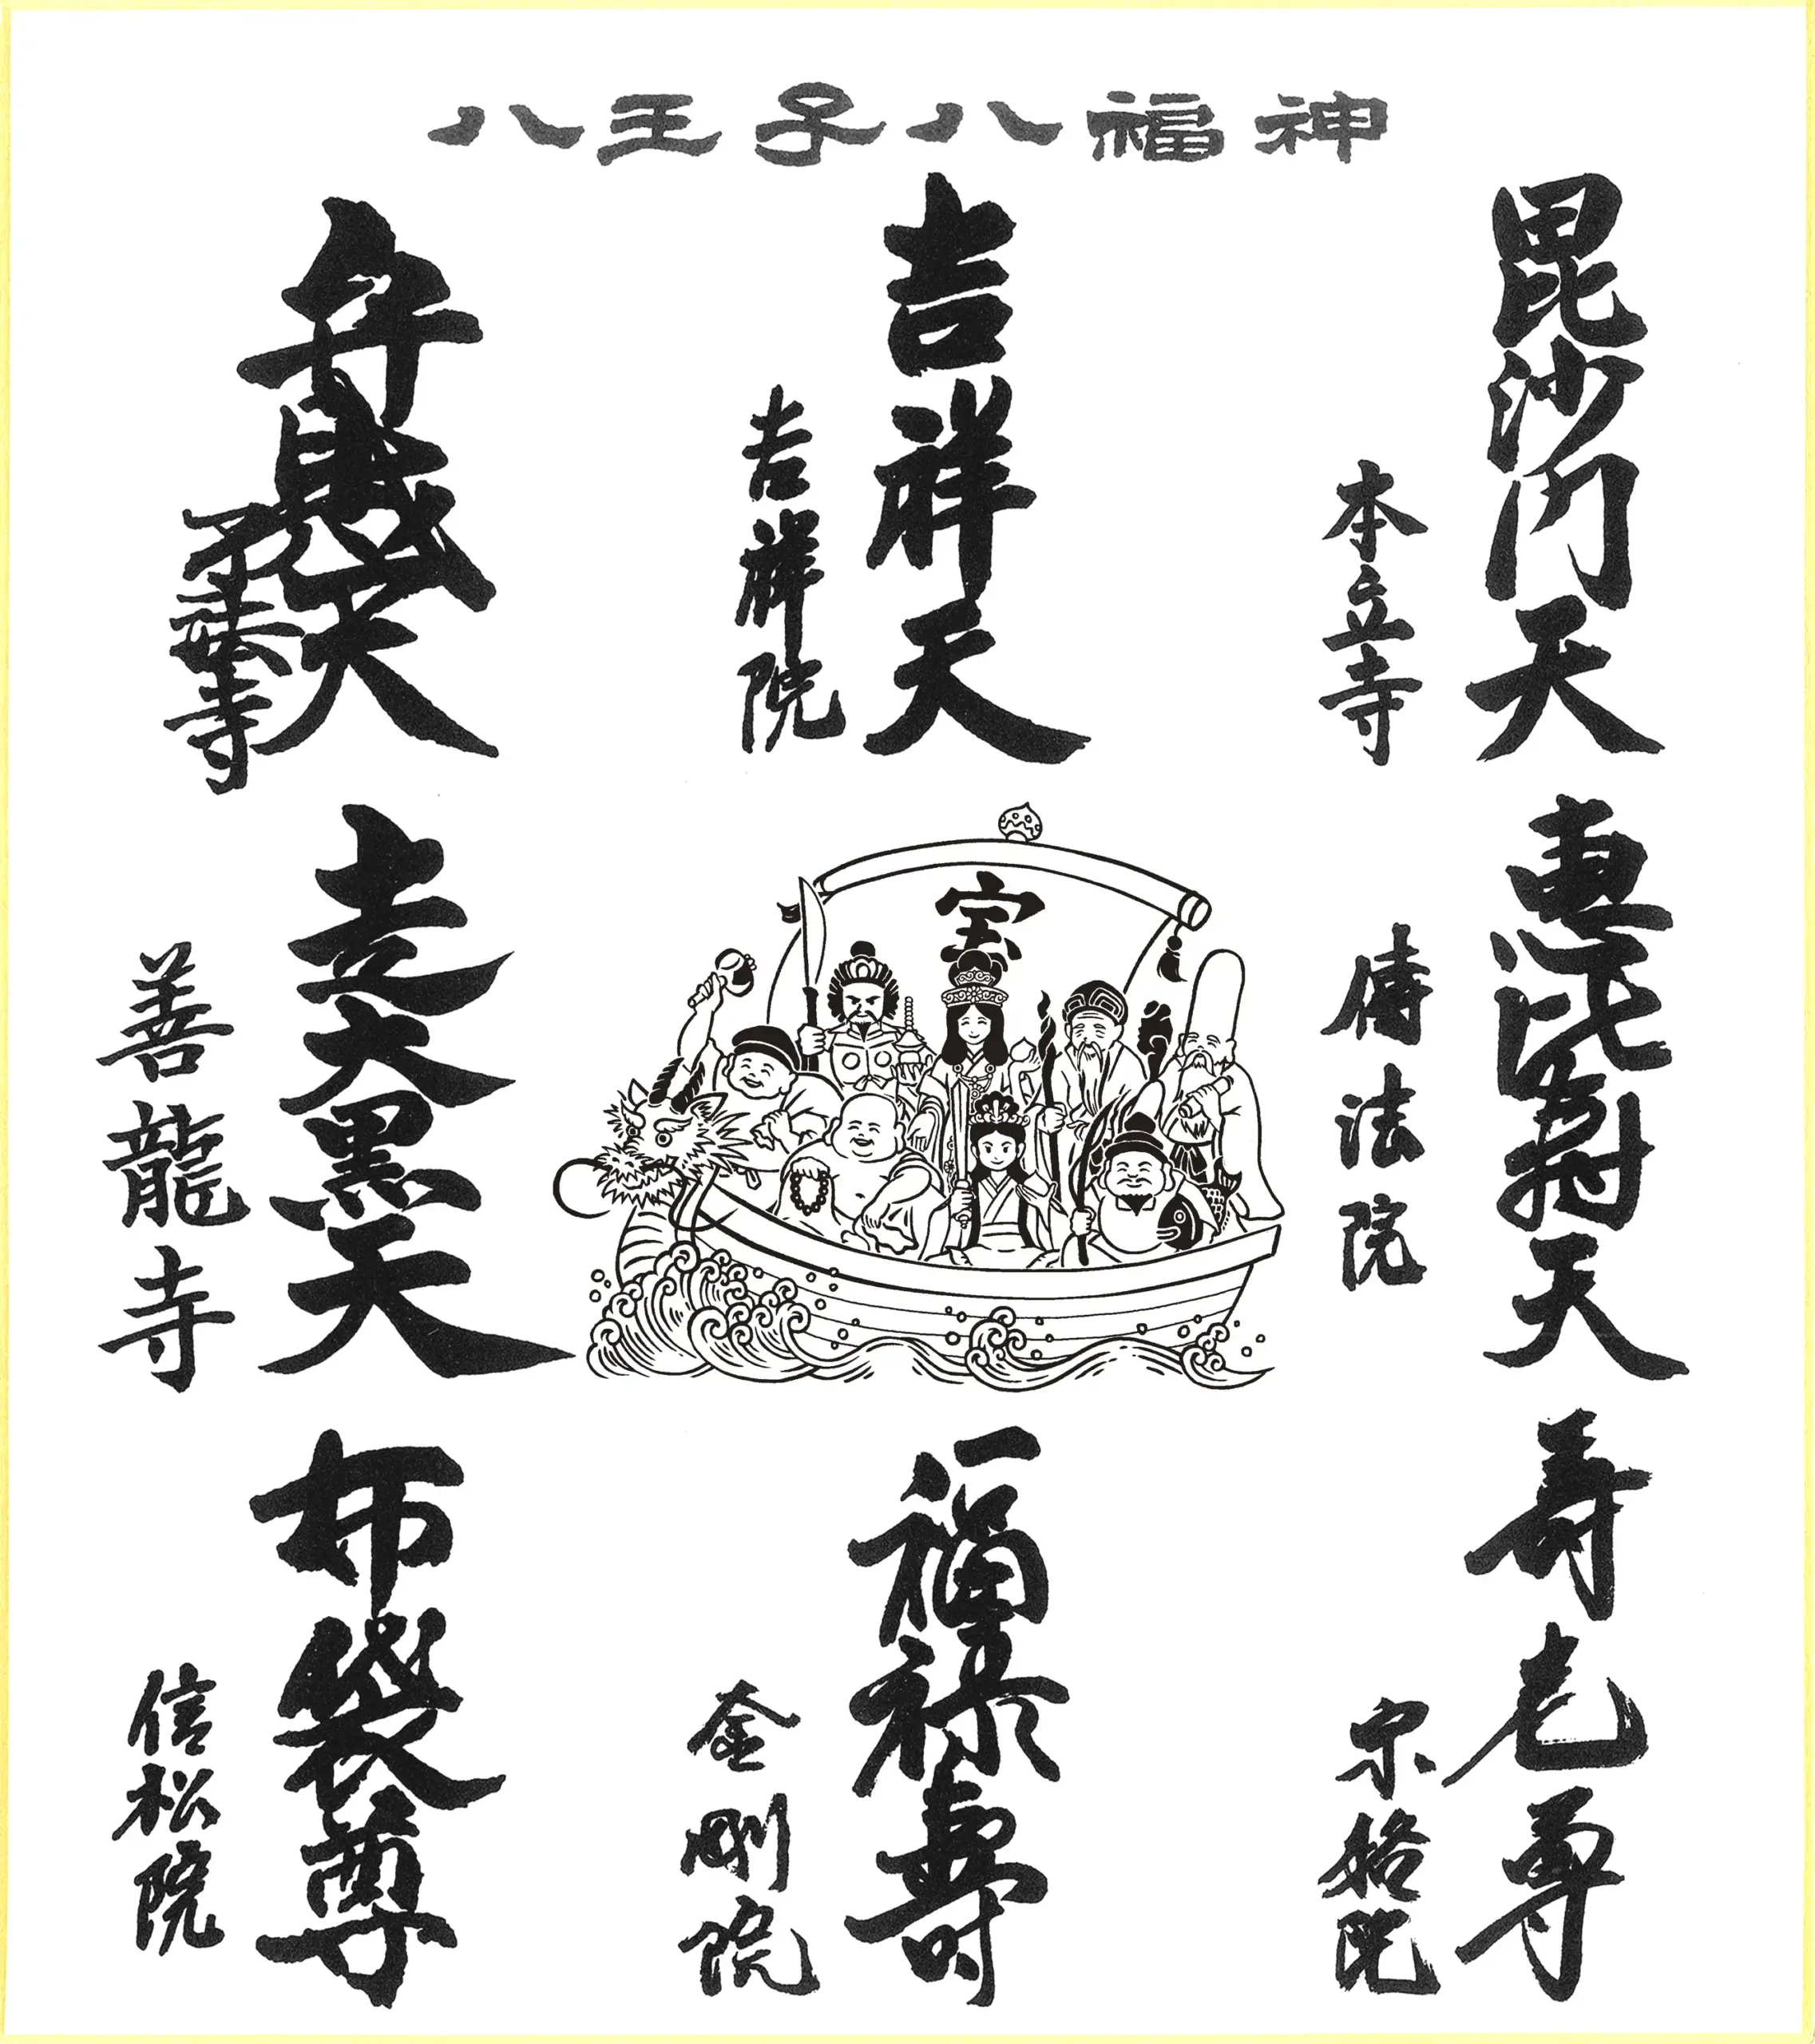 八王子八福神
毘沙門天
本立寺
吉祥天
吉祥院
弁財天
寺
恵比寿天
傳法院
宝
走大黒天
善龍寺
寿老尊
宗格院
福禄壽
金剛院
布袋尊
信松院